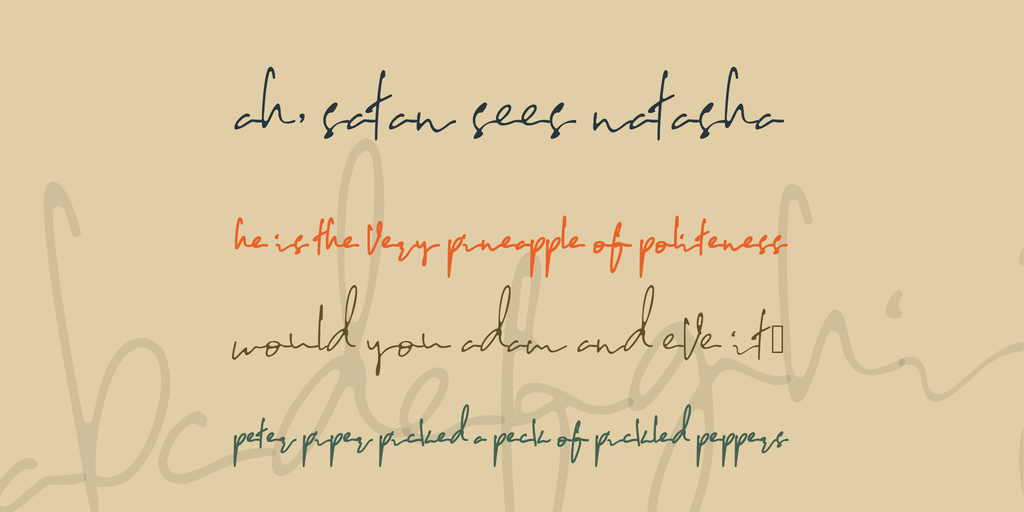 ah, satan sees natasha
he is the very pineapple of politeness
would you adam and eve it▯
peter piper picked a peck of pickled peppers
abcdefghi